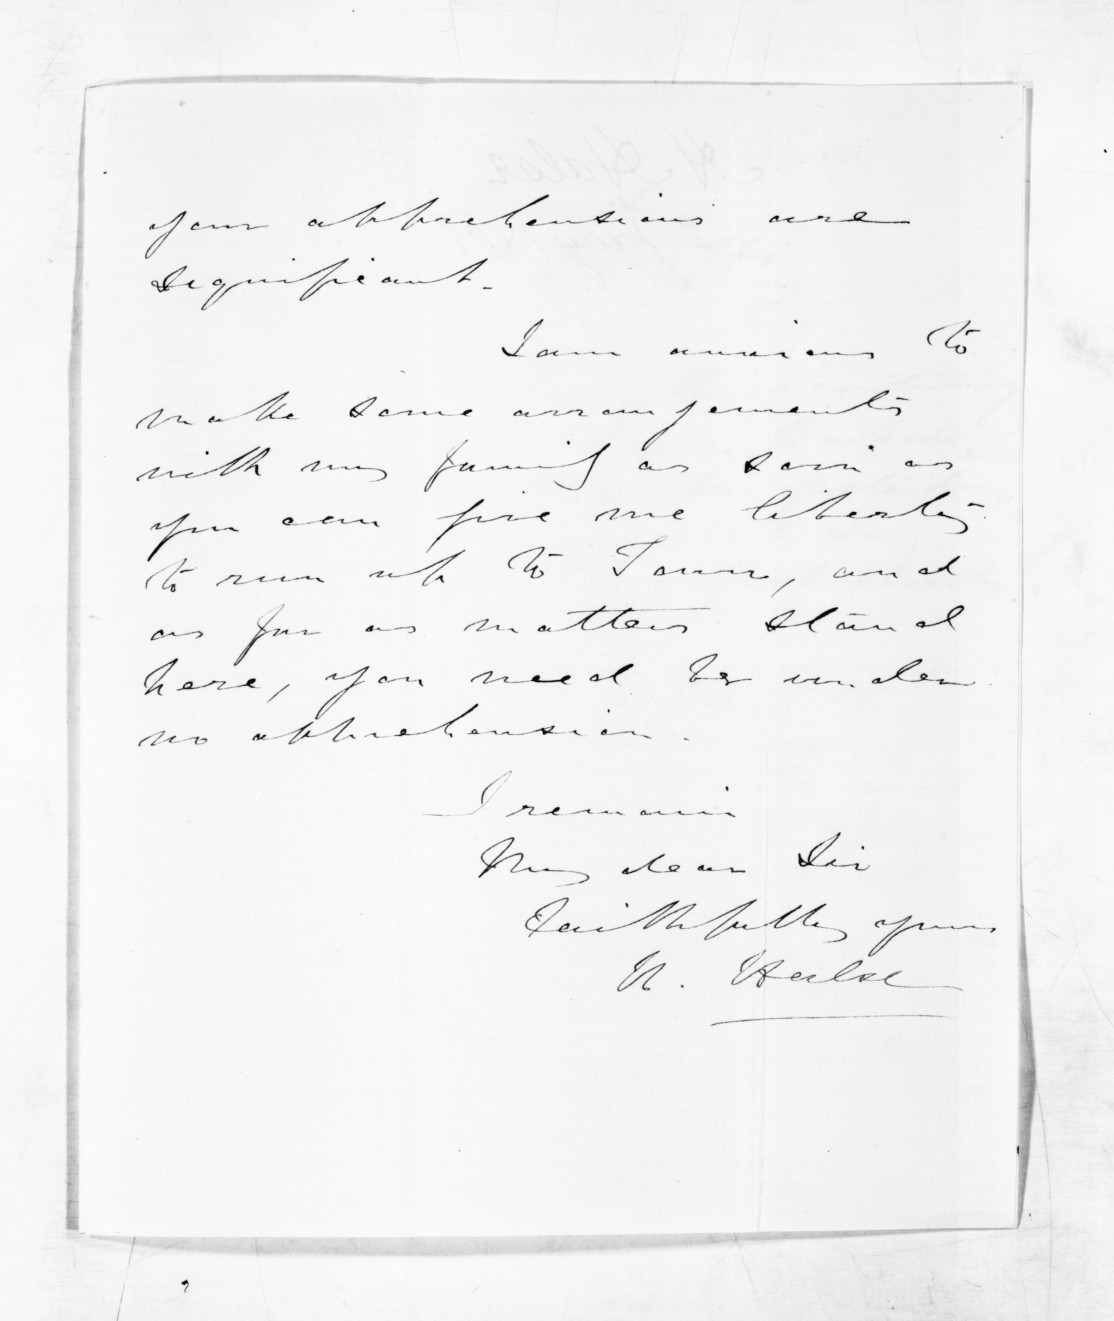 your apprehensions are
significant.
I am anxious to
make some arrangements
with my family as soon as
you can give me liberty
to run up to Town, and
as far as matters stand
here, you need be under
no apprehension.
I remain
My dear Sir
Faithfully yours
H. Halse